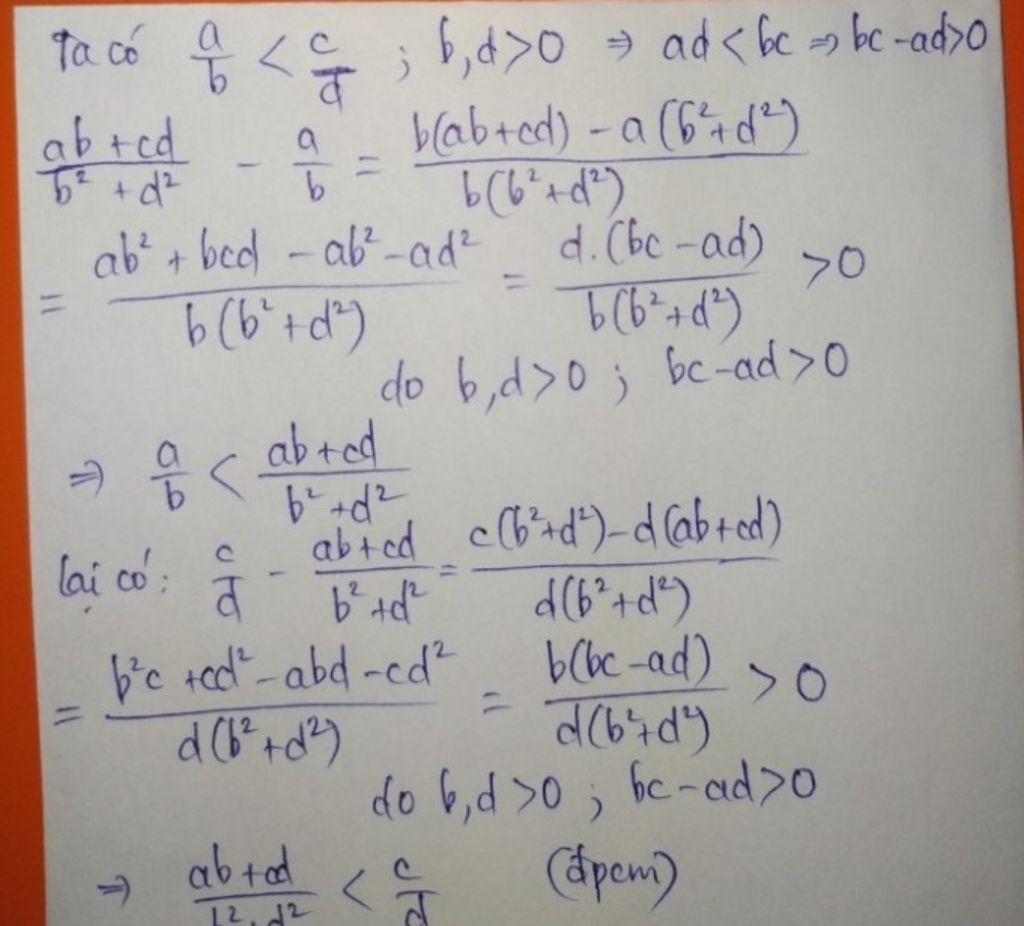 Ta có a/b < c/d ; b,d>0 ⇒ ad < bc ⇒ bc-ad>0
(ab+cd)/(b²+d²) - a/b = (b(ab+cd) - a(b²+d²))/(b(b²+d²))
= (ab² + bcd - ab² - ad²)/(b(b²+d²)) = (d.(bc-ad))/(b(b²+d²)) >0
do b,d>0 ; bc-ad>0
⇒ a/b < (ab+cd)/(b²+d²)
lại có: c/d - (ab+cd)/(b²+d²) = (c(b²+d²)-d(ab+cd))/(d(b²+d²))
= (b²c+cd²-abd-cd²)/(d(b²+d²)) = (b(bc-ad))/(d(b²+d²)) > 0
do b,d>0 ; bc-ad>0
⇒ (ab+cd)/(b²+d²) < c/d (đpcm)